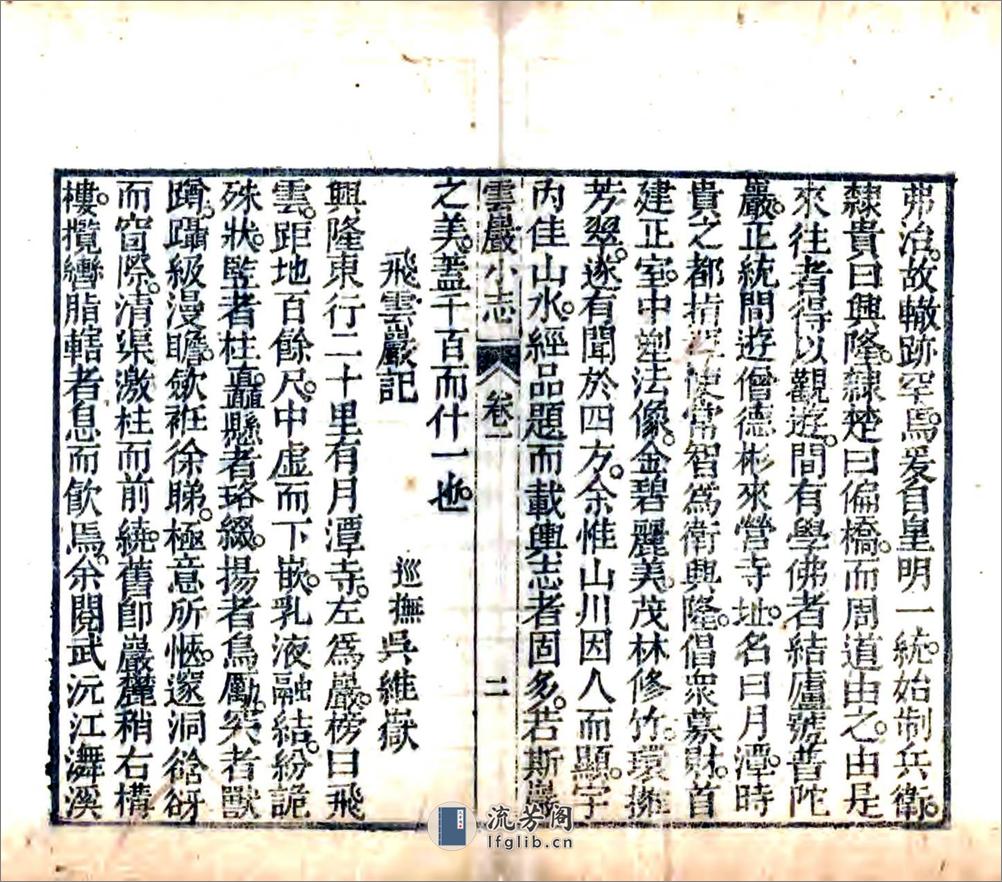 弗治。故轍跡罕焉。爰自皇明一統。始制兵衛。
隸貴曰興隆。隸楚曰偏橋。而周道由之。由是
來往者得以觀遊。間有學佛者結廬號普陀
巖。正統間遊僧德彬來營寺址。名曰月潭。時
貴之都指揮使常智為衛興隆。倡衆募財。首
建正室。中塑法像。金碧麗美。茂林修竹。環擁
芳翠。遂有聞於四方。余惟山川因人而顯。宇
內佳山水。經品題而載輿志者固多。若斯巖
雲巖小志 卷一 二
之美。蓋千百而什一也。
飛雲巖記 巡撫吳維嶽
興隆東行二十里有月潭寺。左為巖。榜曰飛
雲。距地百餘尺。中虛而下嵌。乳液融結。紛詭
殊狀。竪者柱矗。懸者珞綴。揚者鳥勵。突者獸
蹲。躡級漫瞻。斂袵徐睇。極意所愜。邃洞谽谺
而窅際。清渠激柱而前繞。舊卽巖麓稍右構
樓。攬轡脂轄者息而飲焉。余閱武沅江溝溪
流芳阁
lfglib.cn